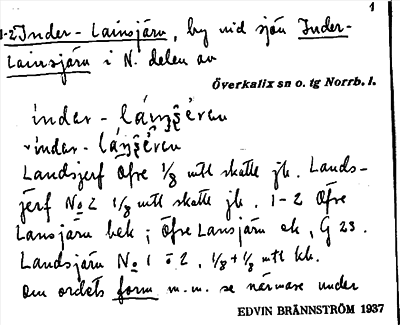 1
1-2 Inder-Lainsjärv, by vid sjön Inder-
Lainsjärv i N. delen av
Överkalix sn o. tg Norrb. l.
Landsjerf Öfre 1/8 mtl skatte jb. Lands-
jerf No 2 1/8 mtl skatte jb. 1-2 Öfre
Lansjärv bek; Öfre Lansjärv ek, G 23.
Landsjärv No 1 o 2, 1/8 + 1/8 mtl kb.
Om ordets form m.m. se närmare under
EDVIN BRÄNNSTRÖM 1937